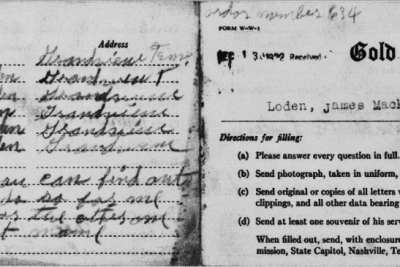 Address
Grandview Tenn
Grandview
Grandview
Grandview
en Grandview
en Grandview
you can find out
so far me
the other me
order number 634
FORM W-W-1
13 1922 Received
Gold
Loden, james Mack
Directions for filling:
(a) Please answer every question in full.
(b) Send photograph, taken in uniform,
(c) Send original or copies of all letters
clippings, and all other data bearing
(d) Send at least one souvenir of his serv
When filled out, send, with enclosure
mission, State Capitol, Nashville, Te